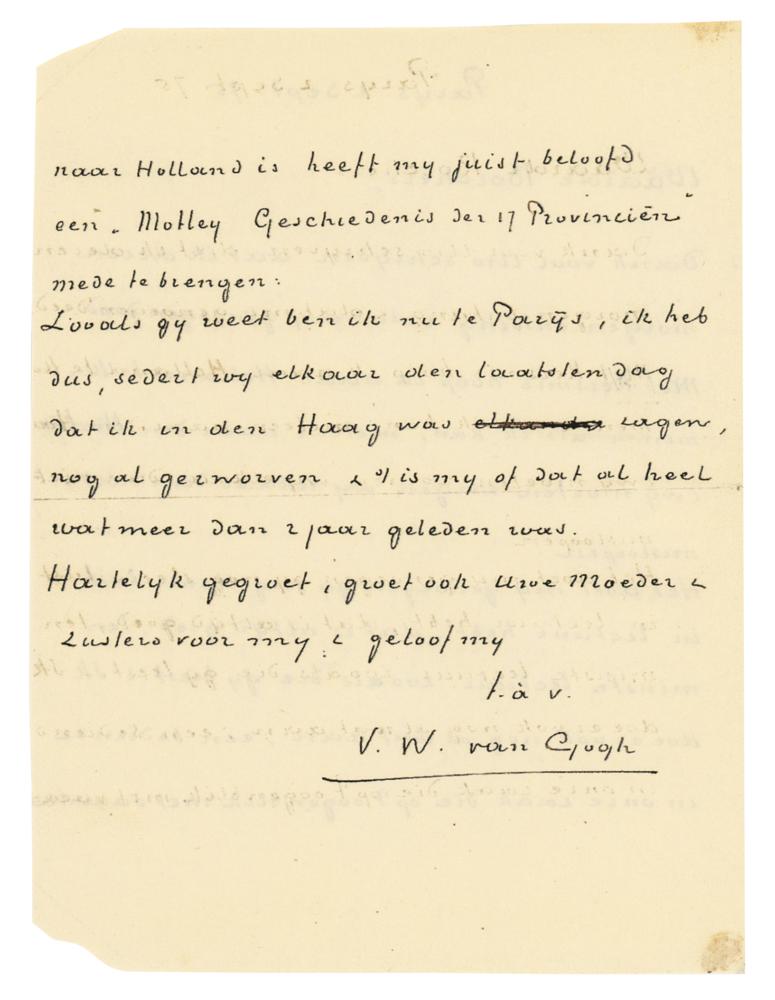 naar Holland is heeft my juist beloofd
een „Motley Geschiedenis der 17 Provinciën”
mede te brengen:
Zooals gy weet ben ik nu te Parijs, ik heb
dus, sedert wy elkaar den laatsten dag
dat ik in den Haag was zagen,
nog al gezworven & 't is my of dat al heel
wat meer dan 2 jaar geleden was.
Hartelyk gegroet, groet ook Uwe Moeder &
Zusters voor my & geloof my
t. à v.
V. W. van Gogh